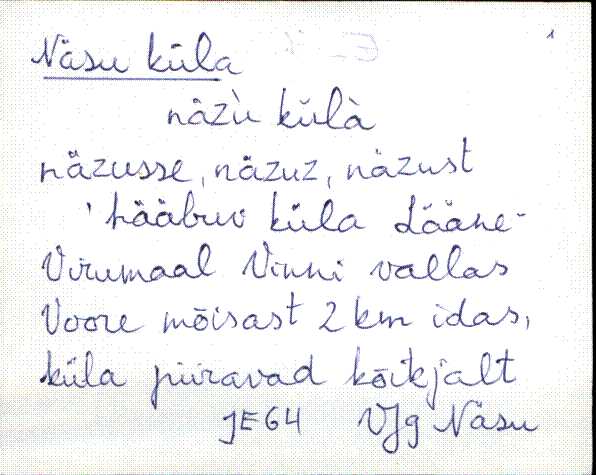 1
Näsu küla
näzù külà
näzusse, näzuz, näzust
'hääbuv küla Lääne-
Virumaal Vinni vallas
Voore mõisast 2 km idas,
küla piiravad kõikjalt
JE64 VJg Näsu